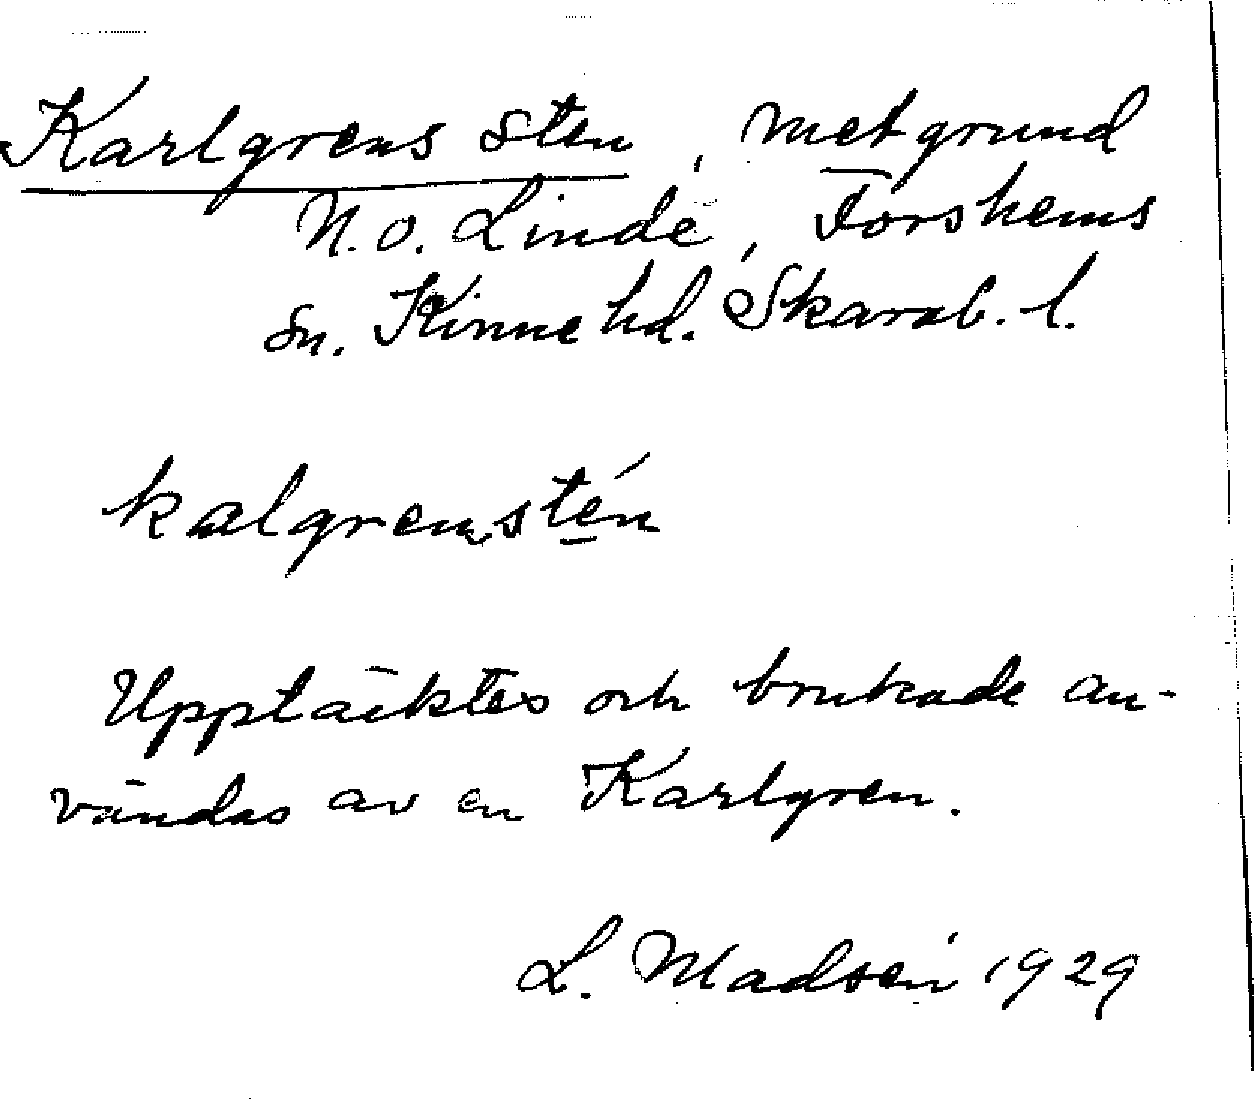 Karlgrens sten, metgrund
N.o. Linde, Forshems
sn. Kinne hd. Skarab. l.
kalgrenstén
Upptäcktes och brukade an-
vändas av en Karlgren.
L. Madsén 1929